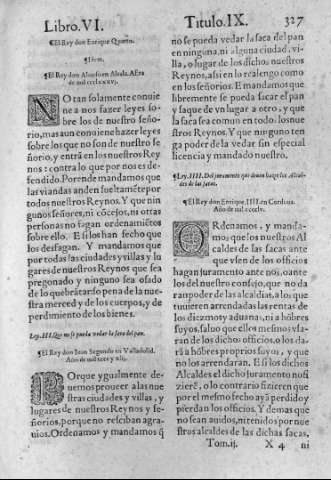 Libro. VI.
Titulo. IX. 327
¶ El Rey don Enrique Quarto.
¶ Idem.
¶ El Rey don Alonso en Alcala. AEra
de mil ccclxxxvj.
NO tan solamente conuie
ne a nos fazer leyes so-
bre los de nuestro seño-
rio, mas aun conuiene hazer leyes
sobre los que no son de nuestro se
ñorio, y entrã en los nuestros Rey
nos: contra lo que por nos es de-
fendido. Porende mandamos que
las viandas anden sueltamẽte por
todos nuestros Reynos. Y que nin
gunos señores, ni cõcejos, ni otras
personas no fagan ordenamiẽtos
sobre ello. E si los han fecho que
los desfagan. Y mandamos que
por todas las ciudades y villas y lu
gares de nuestros Reynos que sea
pregonado y ninguno sea osado
de lo quebrãtar so pena de la nue-
stra merced y de los cuerpos, y de
perdimiento de los bienes.
Ley. III. Que no se pueda vedar la saca del pan.
¶ El Rey don Iuan Segundo en Valladolid.
Año de mil
POrque ygualmente de-
uemos proueer a las nue
stras ciudades y villas, y
lugares de nuestros Reynos y se-
ñorios, porque no resciban agra-
uios. Ordenamos y mandamos q̃
no se pueda vedar la saca del pan
en ninguna, ni alguna ciudad, vi-
lla, o lugar de los dichos nuestros
Reynos, assi en lo realengo como
en los señorios. E mandamos que
libremente se pueda sacar el pan
y saque de vn lugar a otro, y que
la saca sea comun en todos los nue
stros Reynos. Y que ninguno ten
ga poder de la vedar sin especial
licencia y mandado nuestro.
¶ Ley. IIII. Del juramento que deuen hazer los Alcal-
des de las sacas.
¶ El Rey don Enrique IIII. en Cordoua.
Año de mil cccclv.
ORdenamos, y manda-
mos, que los nuestros Al
caldes de las sacas ante
que vsen de los officios
hagan juramento ante nos, o ante
los del nuestro consejo, que no da
ran poder de las alcaldias, a los que
tuuieren arrendadas las rentas de
los diezmos y aduanas, ni a hõbres
suyos, saluo que ellos mesmos vsa-
ran de los dichos officios, o los da-
rã a hõbres proprios suyos, y que
no los arrendaran. E si los dichos
Alcaldes el dicho juramento no fi
zierẽ, o lo contrario fizieren que
por el mesmo fecho ayã perdido y
pierdan los officios. Y demas que
no sean auidos, ni tenidos por nue
stros alcaldes de las dichas sacas,
Tom. ij. X 4 ni